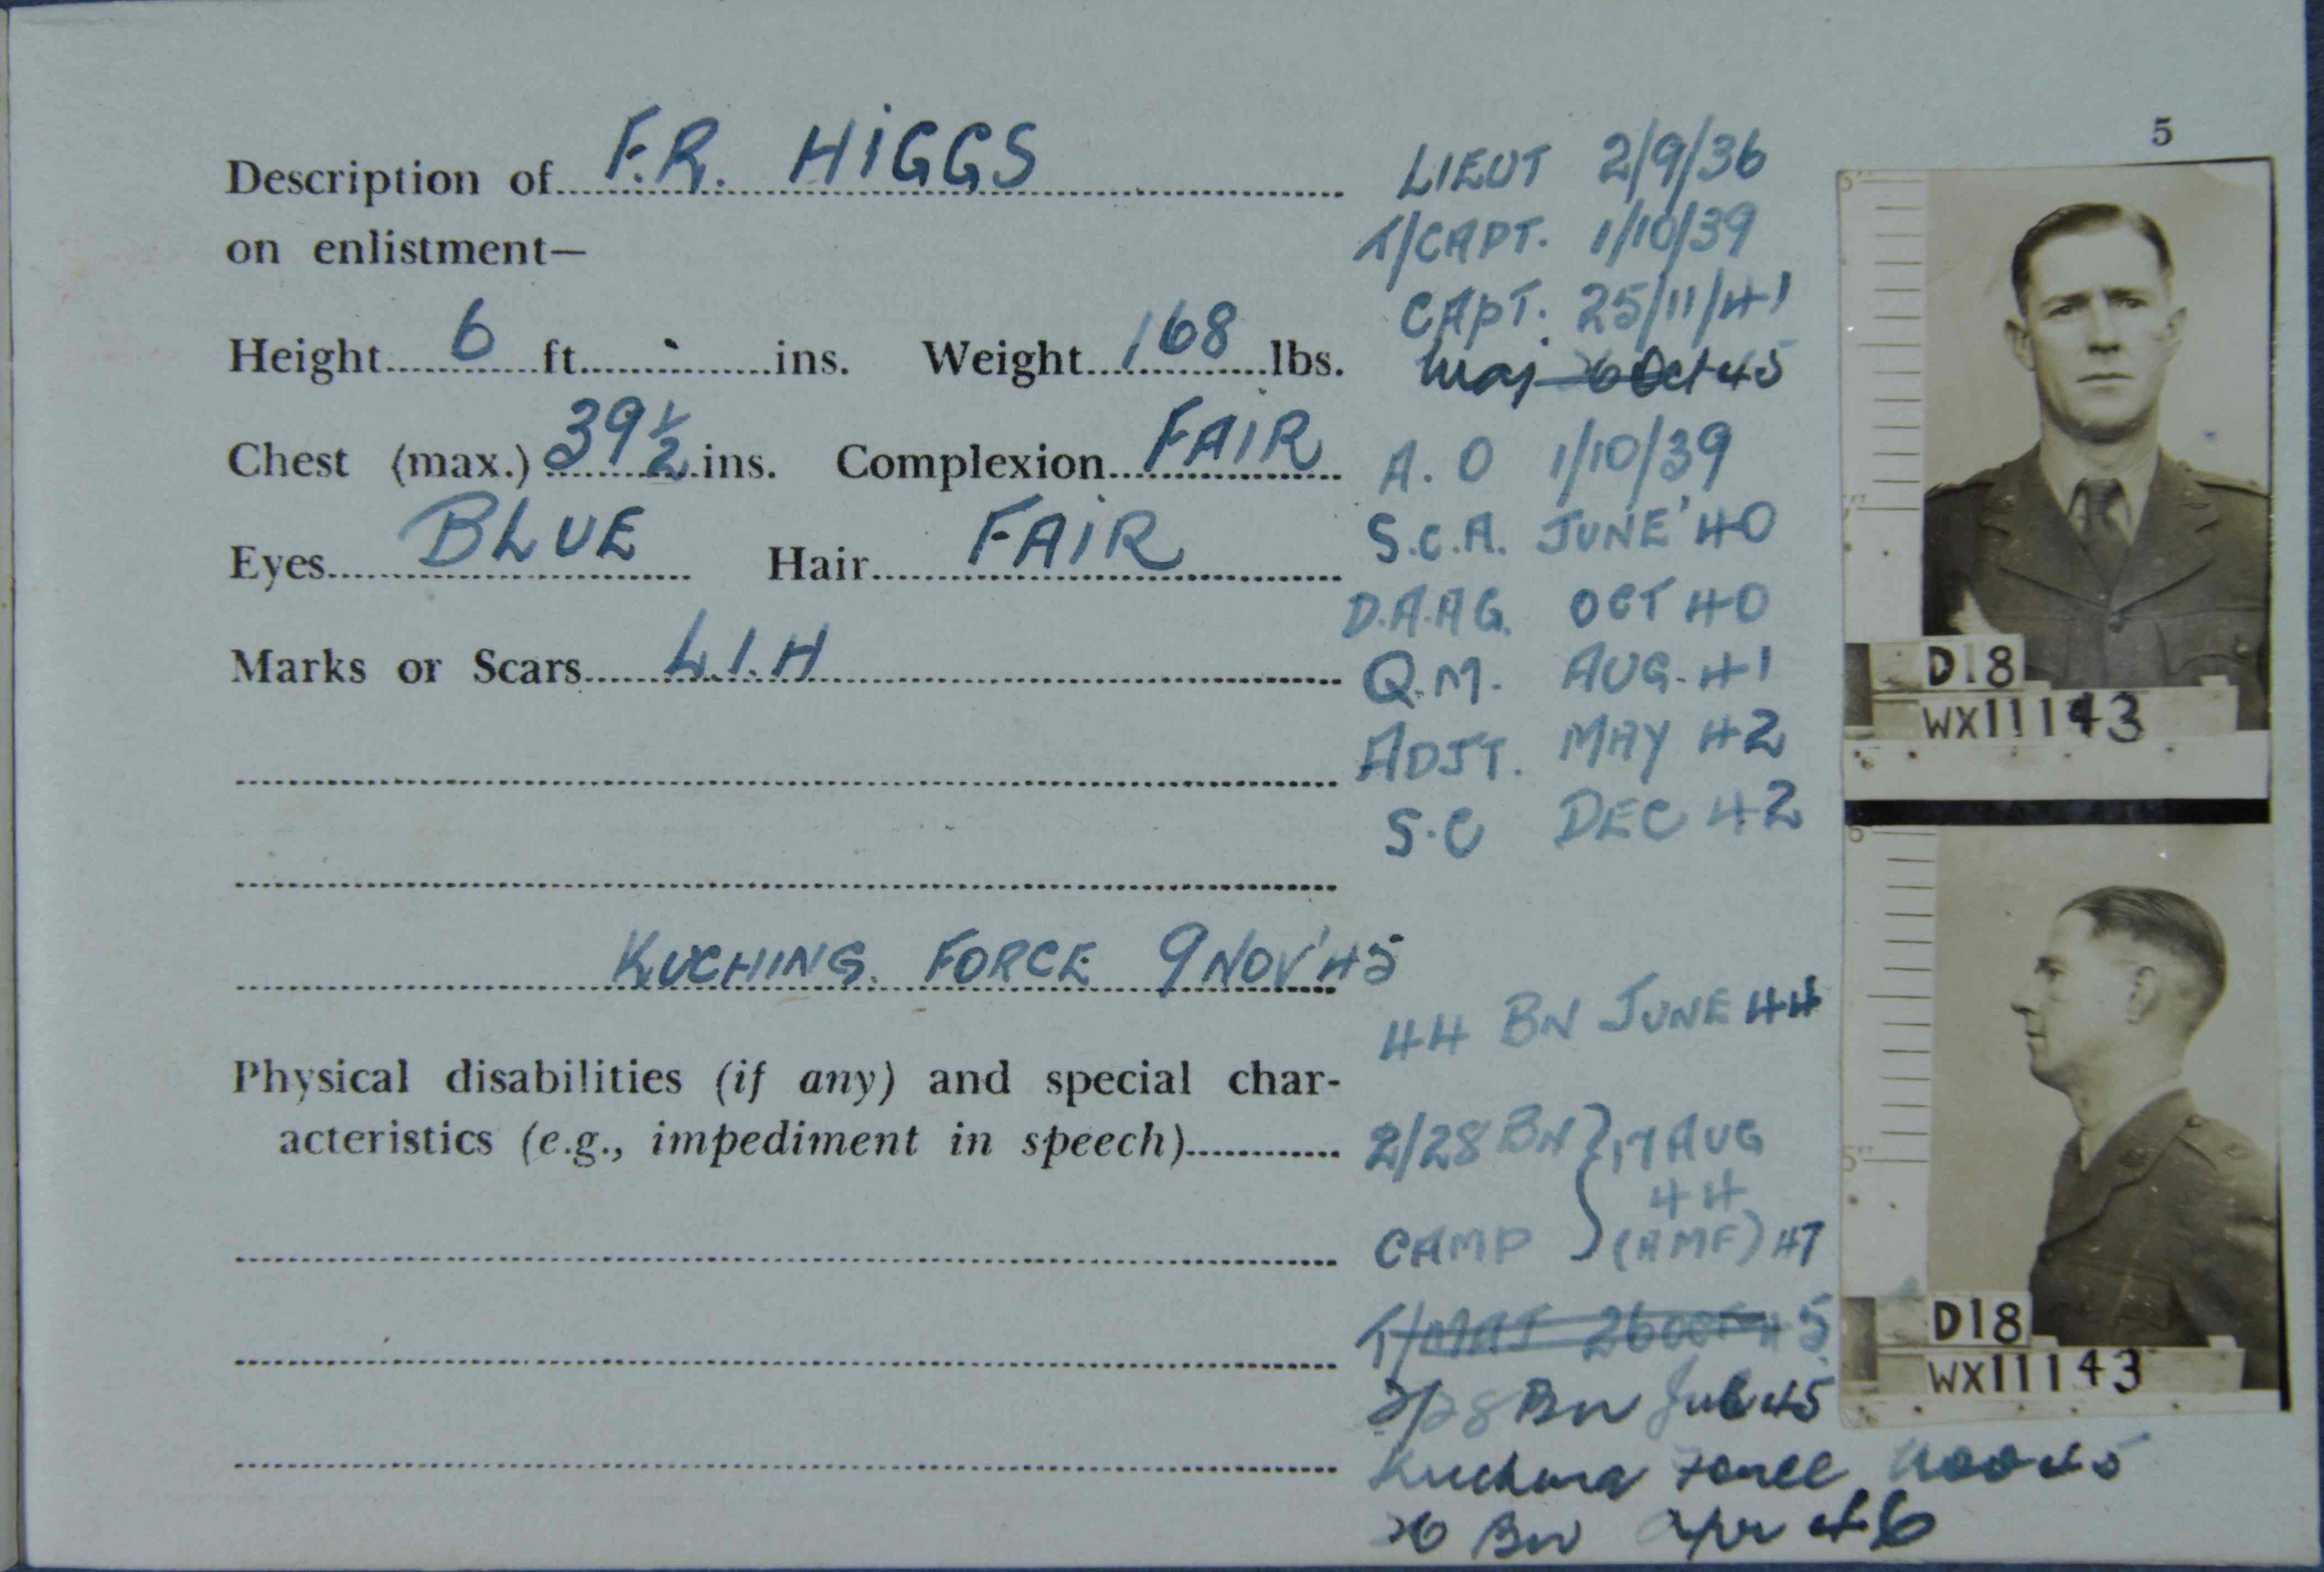 5
Description of F.R. HIGGS
on enlistment—
Height 6 ft. - ins. Weight 168 lbs.
Chest (max.) 39½ ins. Complexion FAIR
Eyes BLUE Hair FAIR
Marks or Scars L.I.H
KUCHING. FORCE 9 NOV'45
Physical disabilities (if any) and special char-
acteristics (e.g., impediment in speech)
LIEUT 2/9/36
T/CAPT. 1/10/39
CAPT. 25/11/41
Maj 26 Oct 45
A.O 1/10/39
S.C.A. JUNE'40
D.A.AG. OCT 40
Q.M. AUG. 41
ADJT. MAY 42
S.C DEC 42
44 BN JUNE 44
2/28 BN } 17 AUG
44
CAMP (AMF) 47
T/MAJ 26 OCT 45
2/28 Bn Jul 45
Kuching Force Nov 45
26 Bn Apr 46
6"
D18
WX11143
6"
5"
D18
WX11143